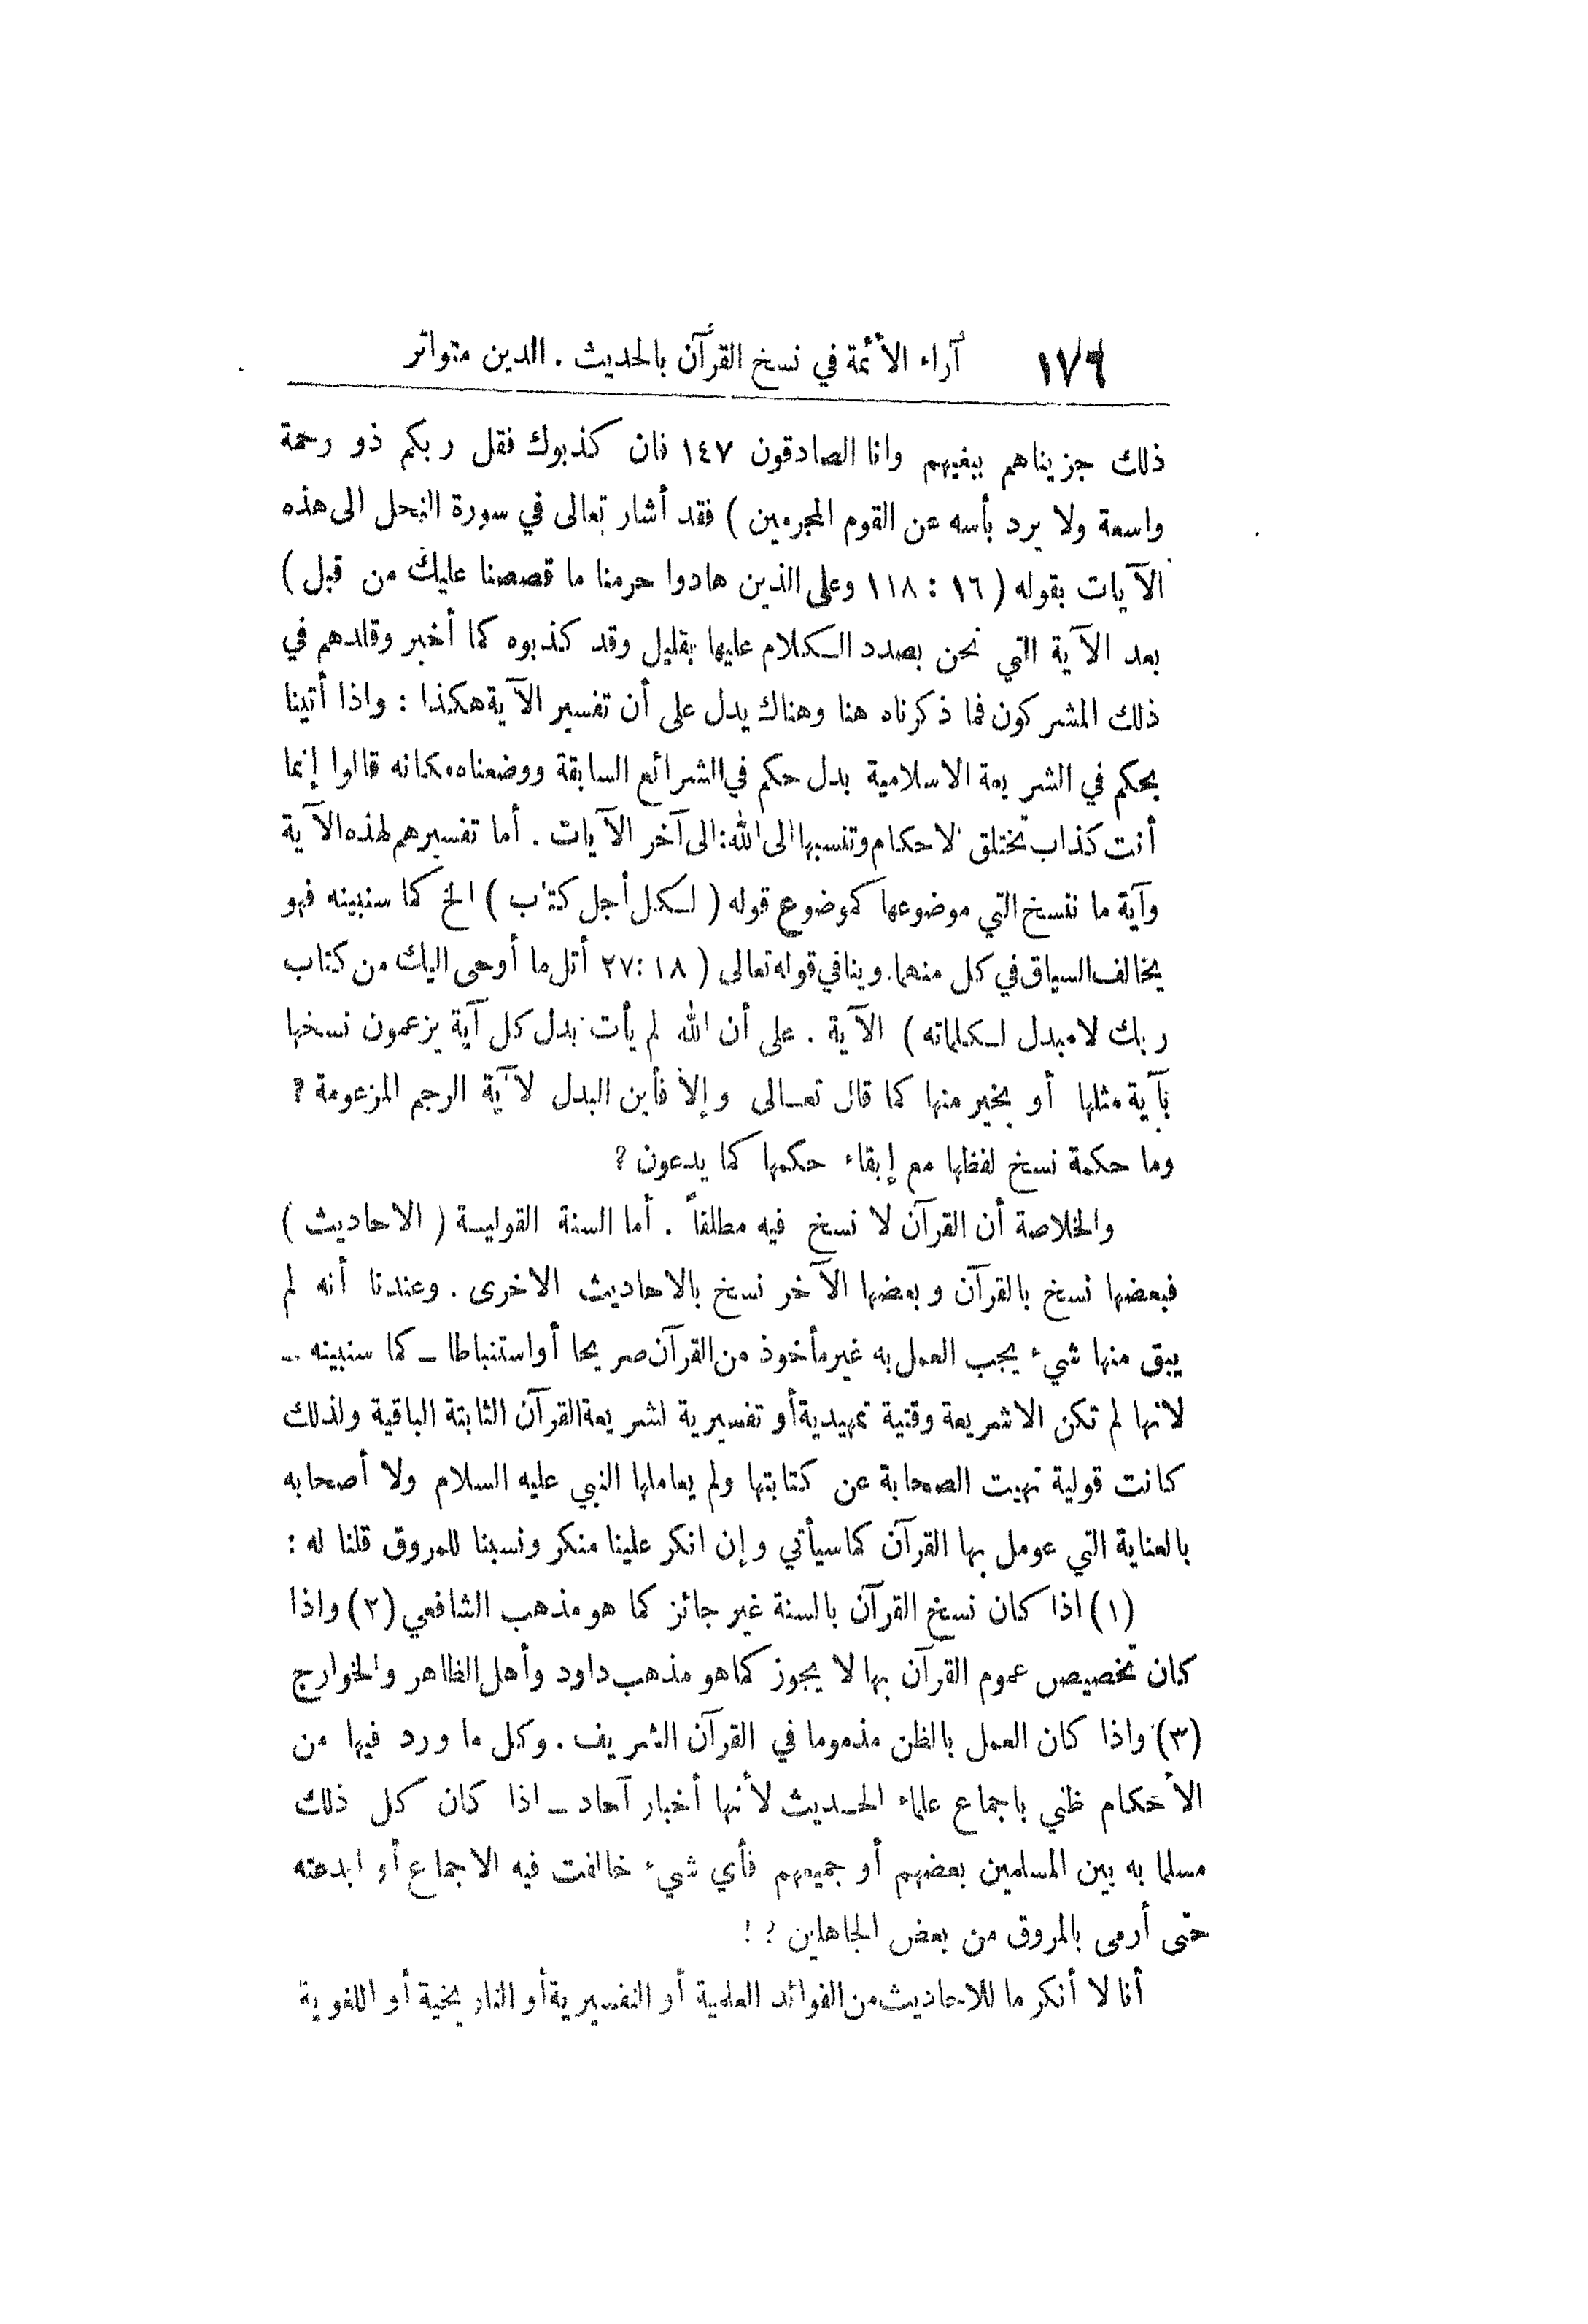 ١٧٦ آراء الأئمة في نسخ القرآن بالحديث . الدين متواتر
ذلك جزيناهم ببغيهم وانا الصادقون ١٤٧ فان كذبوك فقل ربكم ذو رحمة
واسعة ولا يرد بأسه عن القوم المجرمين ) فقد أشار تعالى في سورة النحل الى هذه
الآيات بقوله ( ١٦ : ١١٨ وعلى الذين هادوا حرمنا ما قصصنا عليك من قبل )
بعد الآية التي نحن بصدد الكلام عليها بقليل وقد كذبوه كما أخبر وقلدهم في
ذلك المشركون فما ذكرناه هنا وهناك يدل على أن تفسير الآية هكذا : واذا أتينا
بحكم في الشريعة الاسلامية بدل حكم في الشرائع السابقة ووضعناه مكانه قالوا إنما
أنت كذاب تختلق الاحكام وتنسبها الى الله : الى آخر الآيات . أما تفسيرهم لهذه الآية
وآية ما ننسخ التي موضوعها كموضوع قوله ( لكل أجل كتاب ) الخ كما سنبينه فهو
يخالف السياق في كل منهما . وينافي قوله تعالى ( ١٨ : ٢٧ أتل ما أوحى اليك من كتاب
ربك لا مبدل لكلماته ) الآية . على أن الله لم يأت بدل كل آية يزعمون نسخها
بآية مثلها أو بخير منها كما قال تعالى وإلا فأين البدل لآية الرجم المزعومة ؟
وما حكمة نسخ لفظها مع إبقاء حكمها كما يدعون ؟
والخلاصة أن القرآن لا نسخ فيه مطلقاً . أما السنة القولية ( الاحاديث )
فبعضها نسخ بالقرآن وبعضها الآخر نسخ بالاحاديث الاخرى . وعندنا أنه لم
يبق منها شيء يجب العمل به غير مأخوذ من القرآن صريحا أو استنباطا ــ كما سنبينه ــ
لانها لم تكن الا شريعة وقتية تمهيدية أو تفسيرية لشريعة القرآن الثابتة الباقية ولذلك
كانت قولية نهيت الصحابة عن كتابتها ولم يعاملها النبي عليه السلام ولا أصحابه
بالعناية التي عومل بها القرآن كما سيأتي وإن انكر علينا منكر ونسبنا للمروق قلنا له :
(١) اذا كان نسخ القرآن بالسنة غير جائز كما هو مذهب الشافعي (٢) واذا
كان تخصيص عموم القرآن بها لا يجوز كما هو مذهب داود وأهل الظاهر والخوارج
(٣) واذا كان العمل بالظن مذموما في القرآن الشريف . وكل ما ورد فيها من
الأحكام ظني باجماع علماء الحديث لأنها أخبار آحاد ــ اذا كان كل ذلك
مسلما به بين المسلمين بعضهم أو جميعهم فأي شيء خالفت فيه الاجماع أو ابدعته
حتى أرمى بالمروق من بعض الجاهلين ؟ !
أنا لا أنكر ما للاحاديث من الفوائد العلمية أو التفسيرية أو التاريخية أو اللغوية